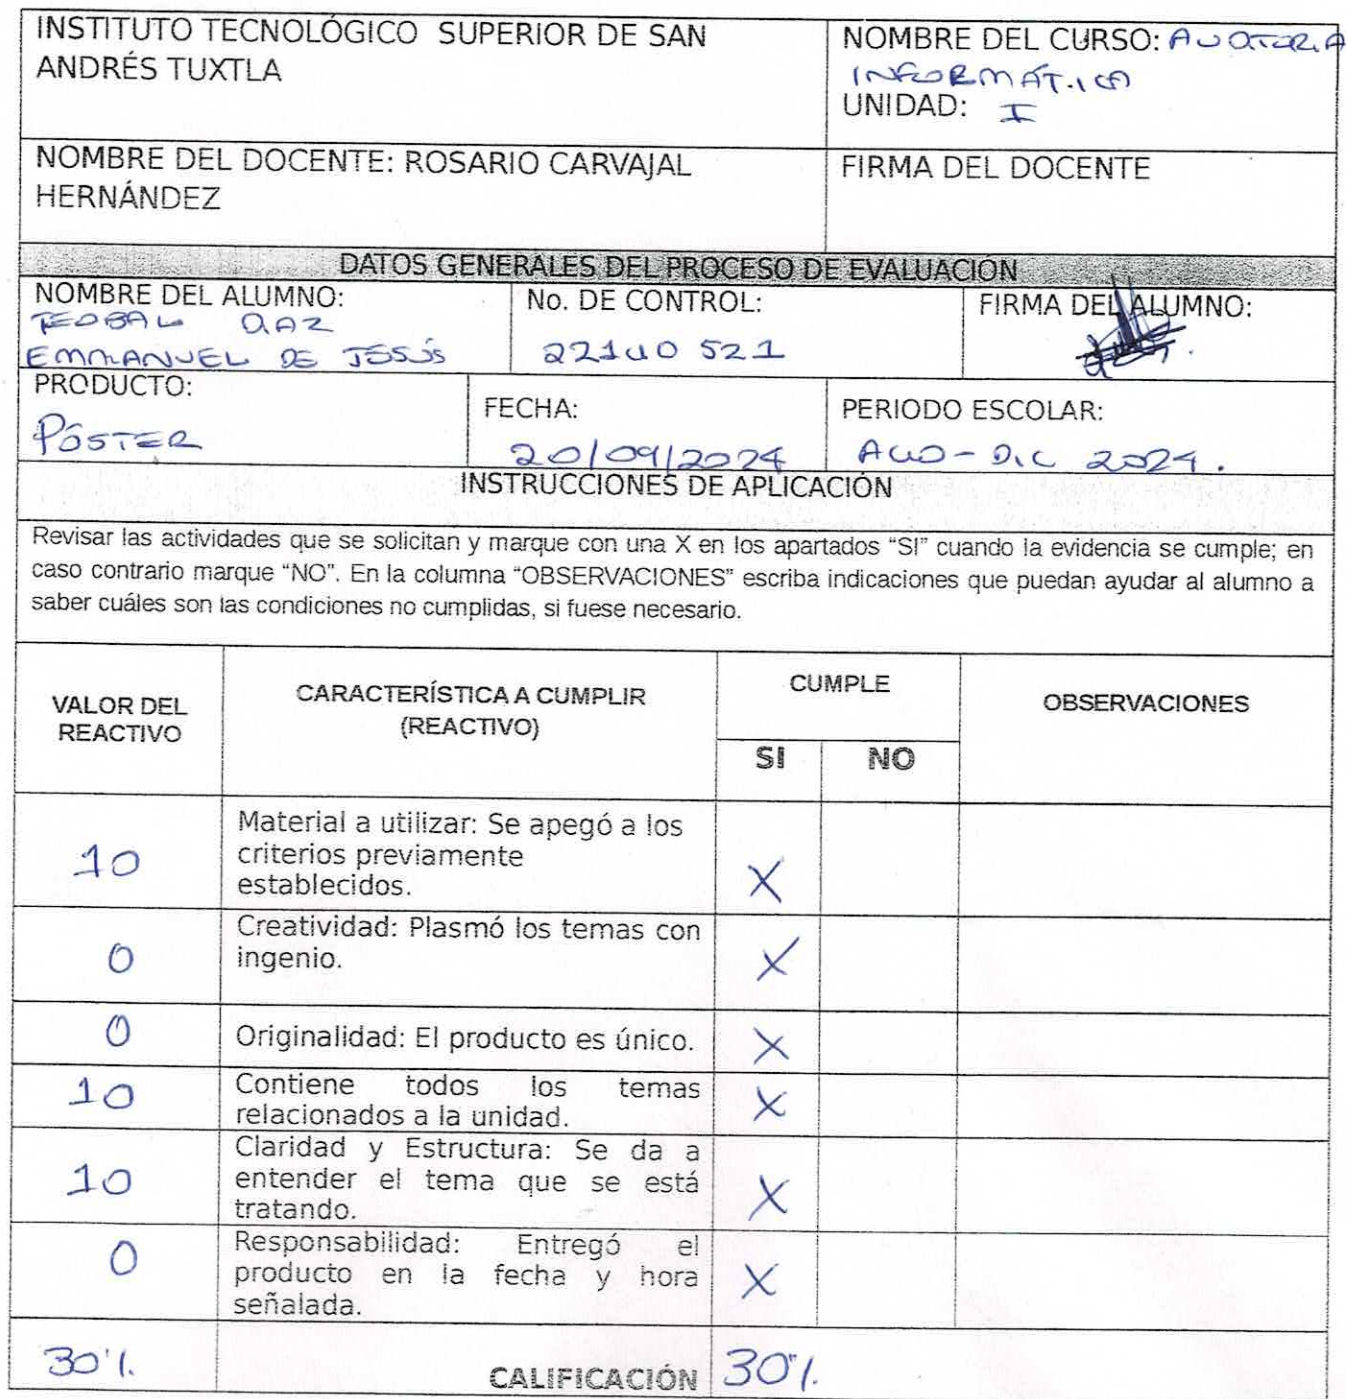 INSTITUTO TECNOLÓGICO SUPERIOR DE SAN
ANDRÉS TUXTLA
NOMBRE DEL CURSO: AUDITORIA
INFORMÁTICA
UNIDAD: I
NOMBRE DEL DOCENTE: ROSARIO CARVAJAL
HERNÁNDEZ
FIRMA DEL DOCENTE
DATOS GENERALES DEL PROCESO DE EVALUACIÓN
NOMBRE DEL ALUMNO:
TEOBAL DIAZ
EMMANUEL DE JESÚS
No. DE CONTROL:
221U0521
FIRMA DEL ALUMNO:
PRODUCTO:
PÓSTER
FECHA:
20/09/2024
PERIODO ESCOLAR:
AGO-DIC 2024.
INSTRUCCIONES DE APLICACIÓN
Revisar las actividades que se solicitan y marque con una X en los apartados “SI” cuando la evidencia se cumple; en
caso contrario marque “NO”. En la columna “OBSERVACIONES” escriba indicaciones que puedan ayudar al alumno a
saber cuáles son las condiciones no cumplidas, si fuese necesario.
VALOR DEL
REACTIVO
CARACTERÍSTICA A CUMPLIR
(REACTIVO)
CUMPLE
SI
NO
OBSERVACIONES
10
Material a utilizar: Se apegó a los
criterios previamente
establecidos.
X
0
Creatividad: Plasmó los temas con
ingenio.
X
0
Originalidad: El producto es único.
X
10
Contiene todos los temas
relacionados a la unidad.
X
10
Claridad y Estructura: Se da a
entender el tema que se está
tratando.
X
0
Responsabilidad: Entregó el
producto en la fecha y hora
señalada.
X
30%
CALIFICACIÓN
30%